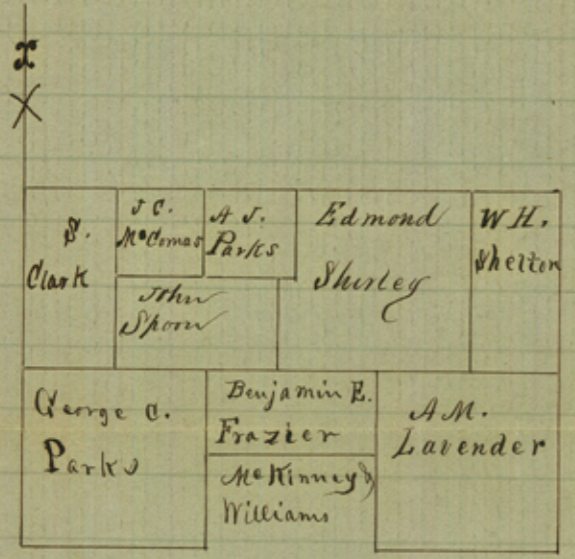 x
X
S.
Clark
J C.
McComas
A J.
Parks
John
Spoon
Edmond
Shirley
W H.
Shelton
George C.
Parks
Benjamin E.
Frazier
McKinney &
Williams
A M.
Lavender